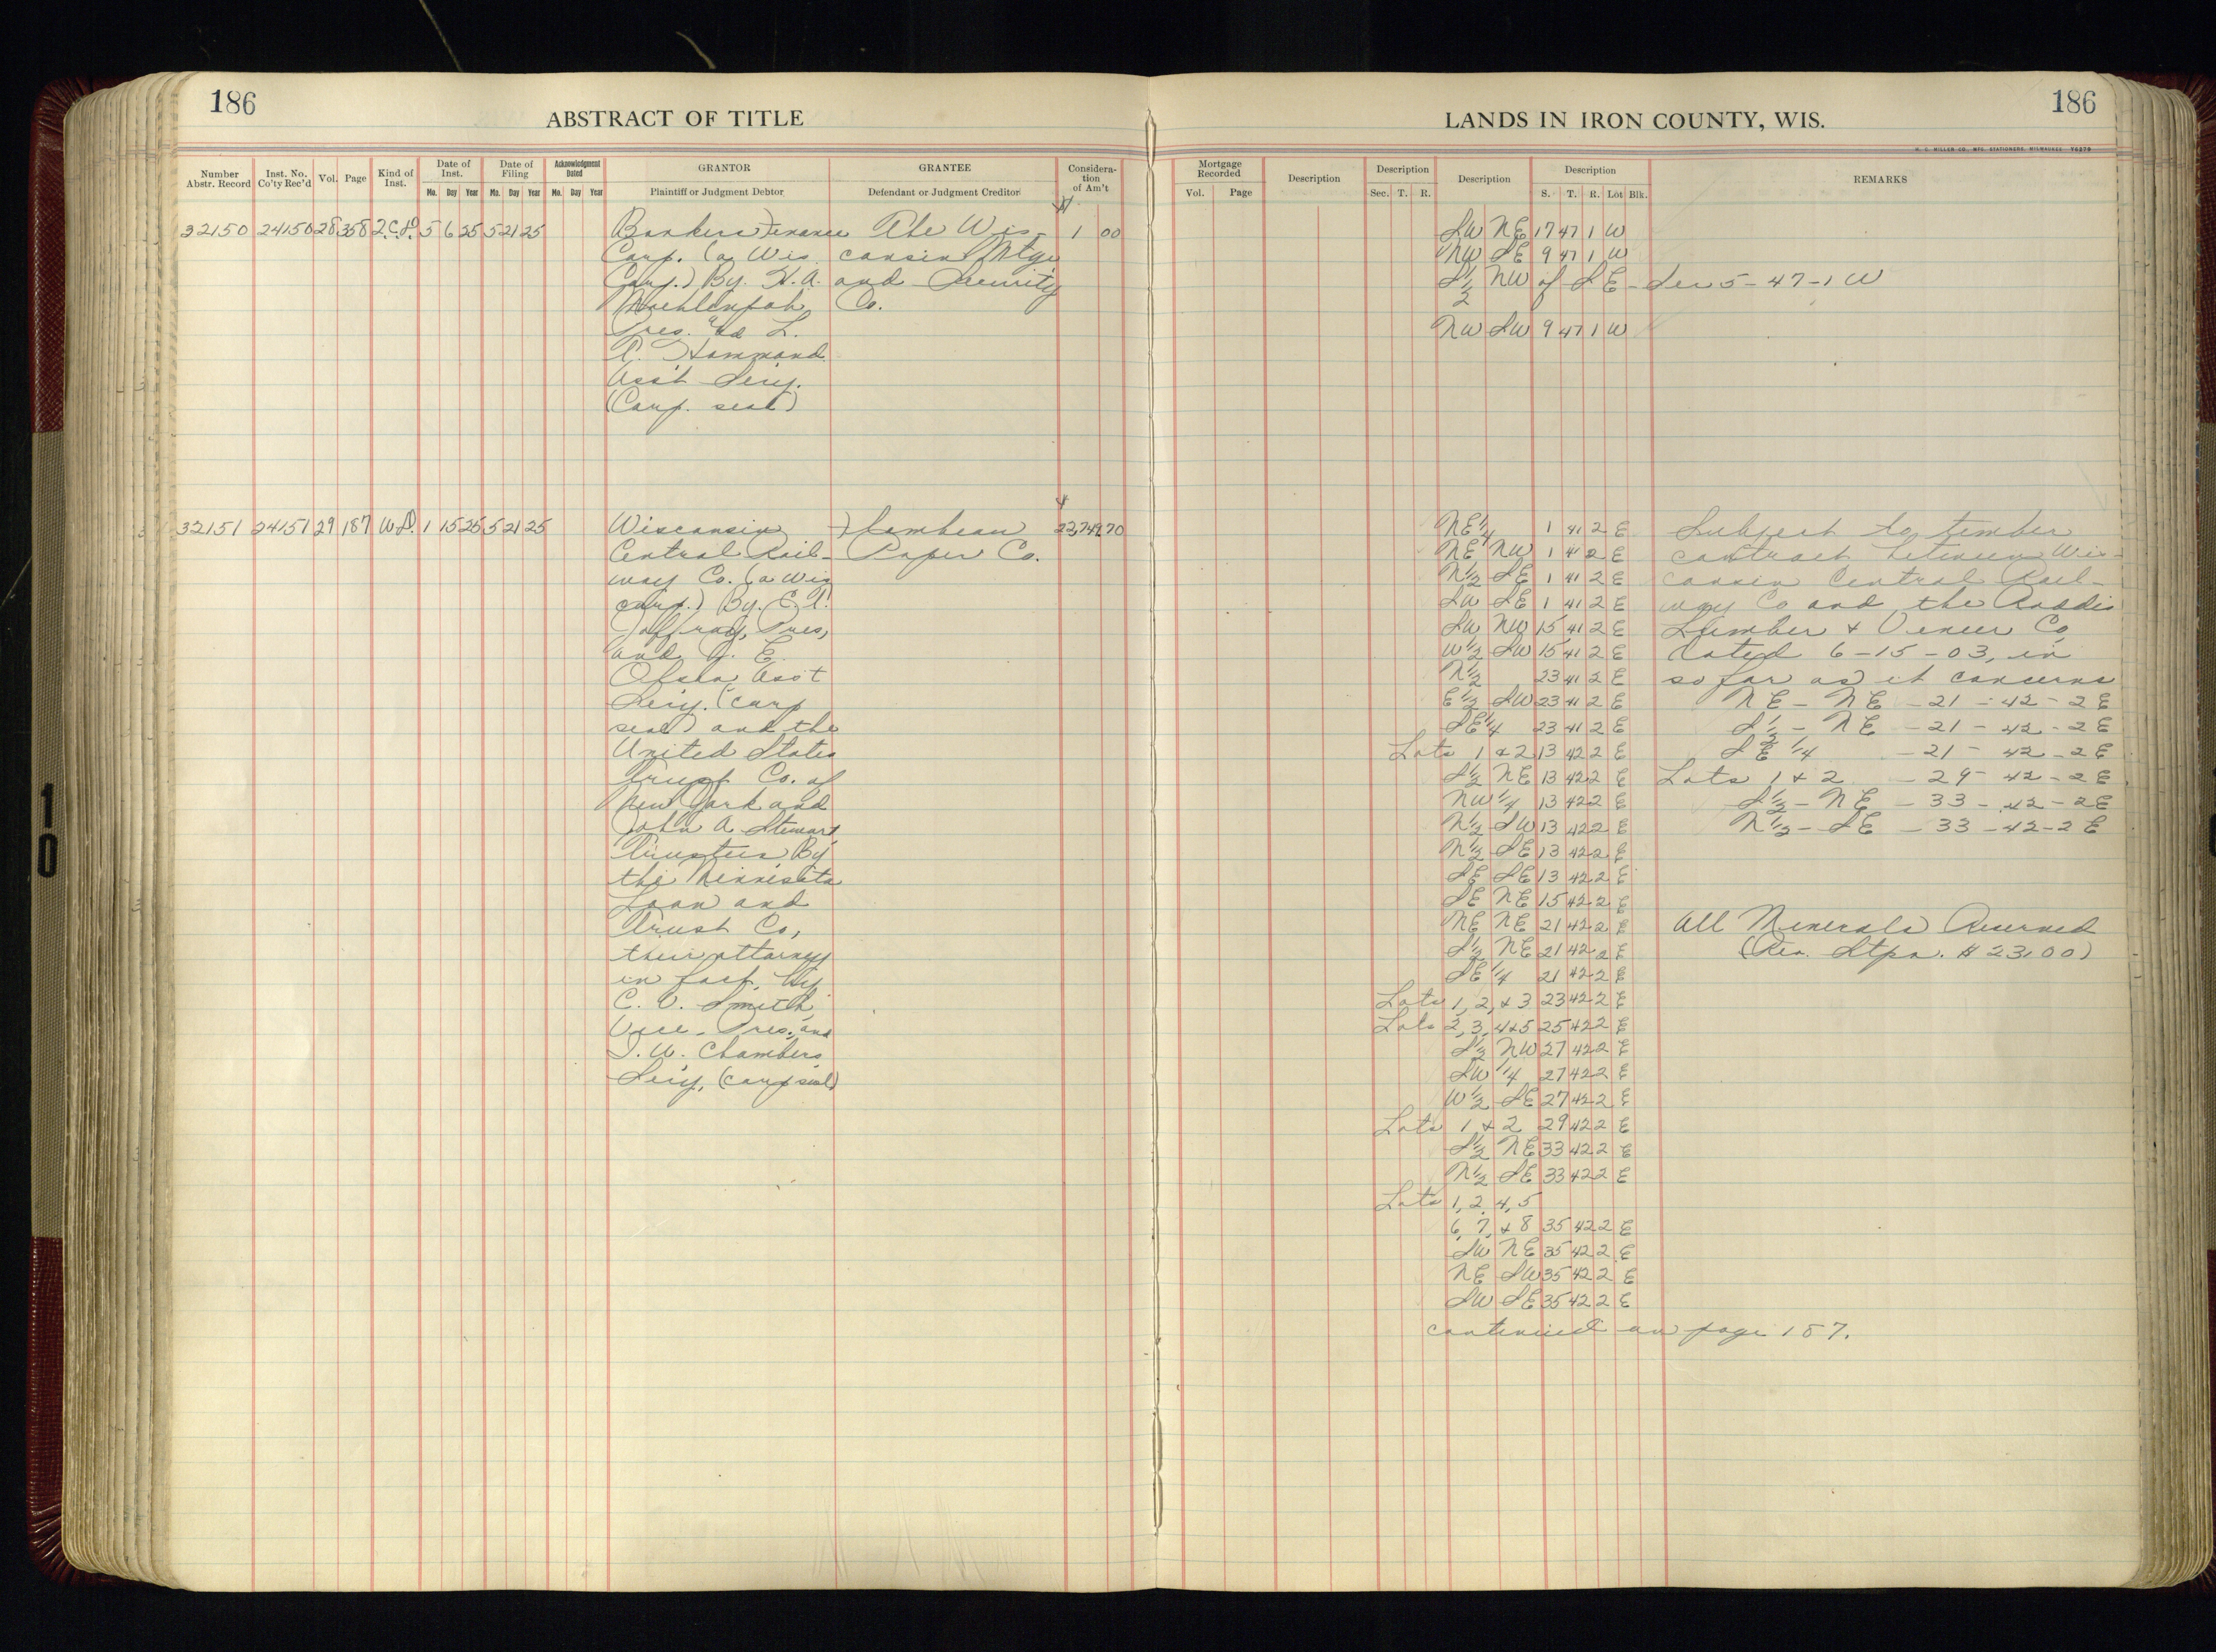 186
ABSTRACT OF TITLE
LANDS IN IRON COUNTY, WIS.
186
W. C. MILLER CO., MFG. STATIONERS, MILWAUKEE
Number Abstr. Record
Inst. No. Co'ty Rec'd
Vol.
Page
Kind of Inst.
Date of Inst.
Mo. Day Year
Date of Filing
Mo. Day Year
Acknowledgment Dated
Mo. Day Year
GRANTOR
Plaintiff or Judgment Debtor
GRANTEE
Defendant or Judgment Creditor
Considera-tion of Am't
Mortgage Recorded
Vol. Page
Description
Description
Sec. T. R.
Description
Description
S. T. R. Lot Blk.
REMARKS
32150 24150 28 358 2.C.D. 5 6 25 5 21 25
Bankers Finance
Corp. (a Wis.
Corp.) By. H.A.
Moehlenpah
Pres. and L.
P. Hammond
Ass't Secy.
(Corp. seal)
The Wis-
consin Mtge
and Security
Co.
1 00
SW NE 17 47 1 W
NW SE 9 47 1 W
S½ NW of SE - Sec 5 - 47 - 1 W
NW SW 9 47 1 W
32151 24151 29 187 W.D. 1 15 25 5 21 25
Wisconsin
Central Rail-
way Co. (a Wis
corp.) By. C.T.
Jaffray, Pres,
and G. E.
Olson Ass't
Secy. (corp
seal) and the
United States
Trust Co. of
New York and
John A Stewart
Trustees By
the Minnesota
Loan and
Trust Co,
their attorney
in fact, By
C. V. Smith,
Vice-Pres, and
I. W. Chambers
Secy, (corp seal)
Flambeau
Paper Co.
22,749.70
NE¼ 1 41 2 E
NE NW 1 41 2 E
N½ SE 1 41 2 E
SW SE 1 41 2 E
SW NW 15 41 2 E
W½ SW 15 41 2 E
N½ 23 41 2 E
E½ SW 23 41 2 E
SE¼ 23 41 2 E
Lots 1 & 2 13 42 2 E
S½ NE 13 42 2 E
NW¼ 13 42 2 E
N½ SW 13 42 2 E
N½ SE 13 42 2 E
SE SE 13 42 2 E
SE NE 15 42 2 E
NE NE 21 42 2 E
S½ NE 21 42 2 E
SE ¼ 21 42 2 E
Lots 1, 2, & 3 23 42 2 E
Lots 2, 3, 4 & 5 25 42 2 E
S½ NW 27 42 2 E
SW ¼ 27 42 2 E
W½ SE 27 42 2 E
Lots 1 & 2 29 42 2 E
S½ NE 33 42 2 E
N½ SE 33 42 2 E
Lots 1, 2, 4, 5
6, 7, & 8 35 42 2 E
SW NE 35 42 2 E
NE SW 35 42 2 E
SW SE 35 42 2 E
continued on page 187.
Subject to timber
contract between Wis-
consin Central Rail-
way Co and the Roddis
Lumber & Veneer Co
dated 6-15-03, in
so far as it concerns
NE - NE - 21 - 42 - 2 E
S½ - NE - 21 - 42 - 2 E
SE ¼ - 21 - 42 - 2 E
Lots 1 & 2 - 29 - 42 - 2 E
S½ - NE - 33 - 42 - 2 E
N½ - SE - 33 - 42 - 2 E
All Minerals Reserved
(Rev. Stps. $23.00)